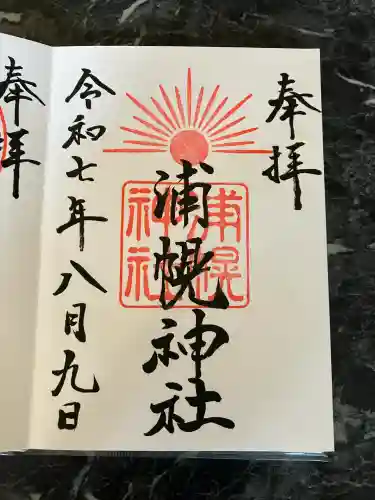 奉拝
浦幌神社
浦幌神社
令和七年八月九日
奉拝